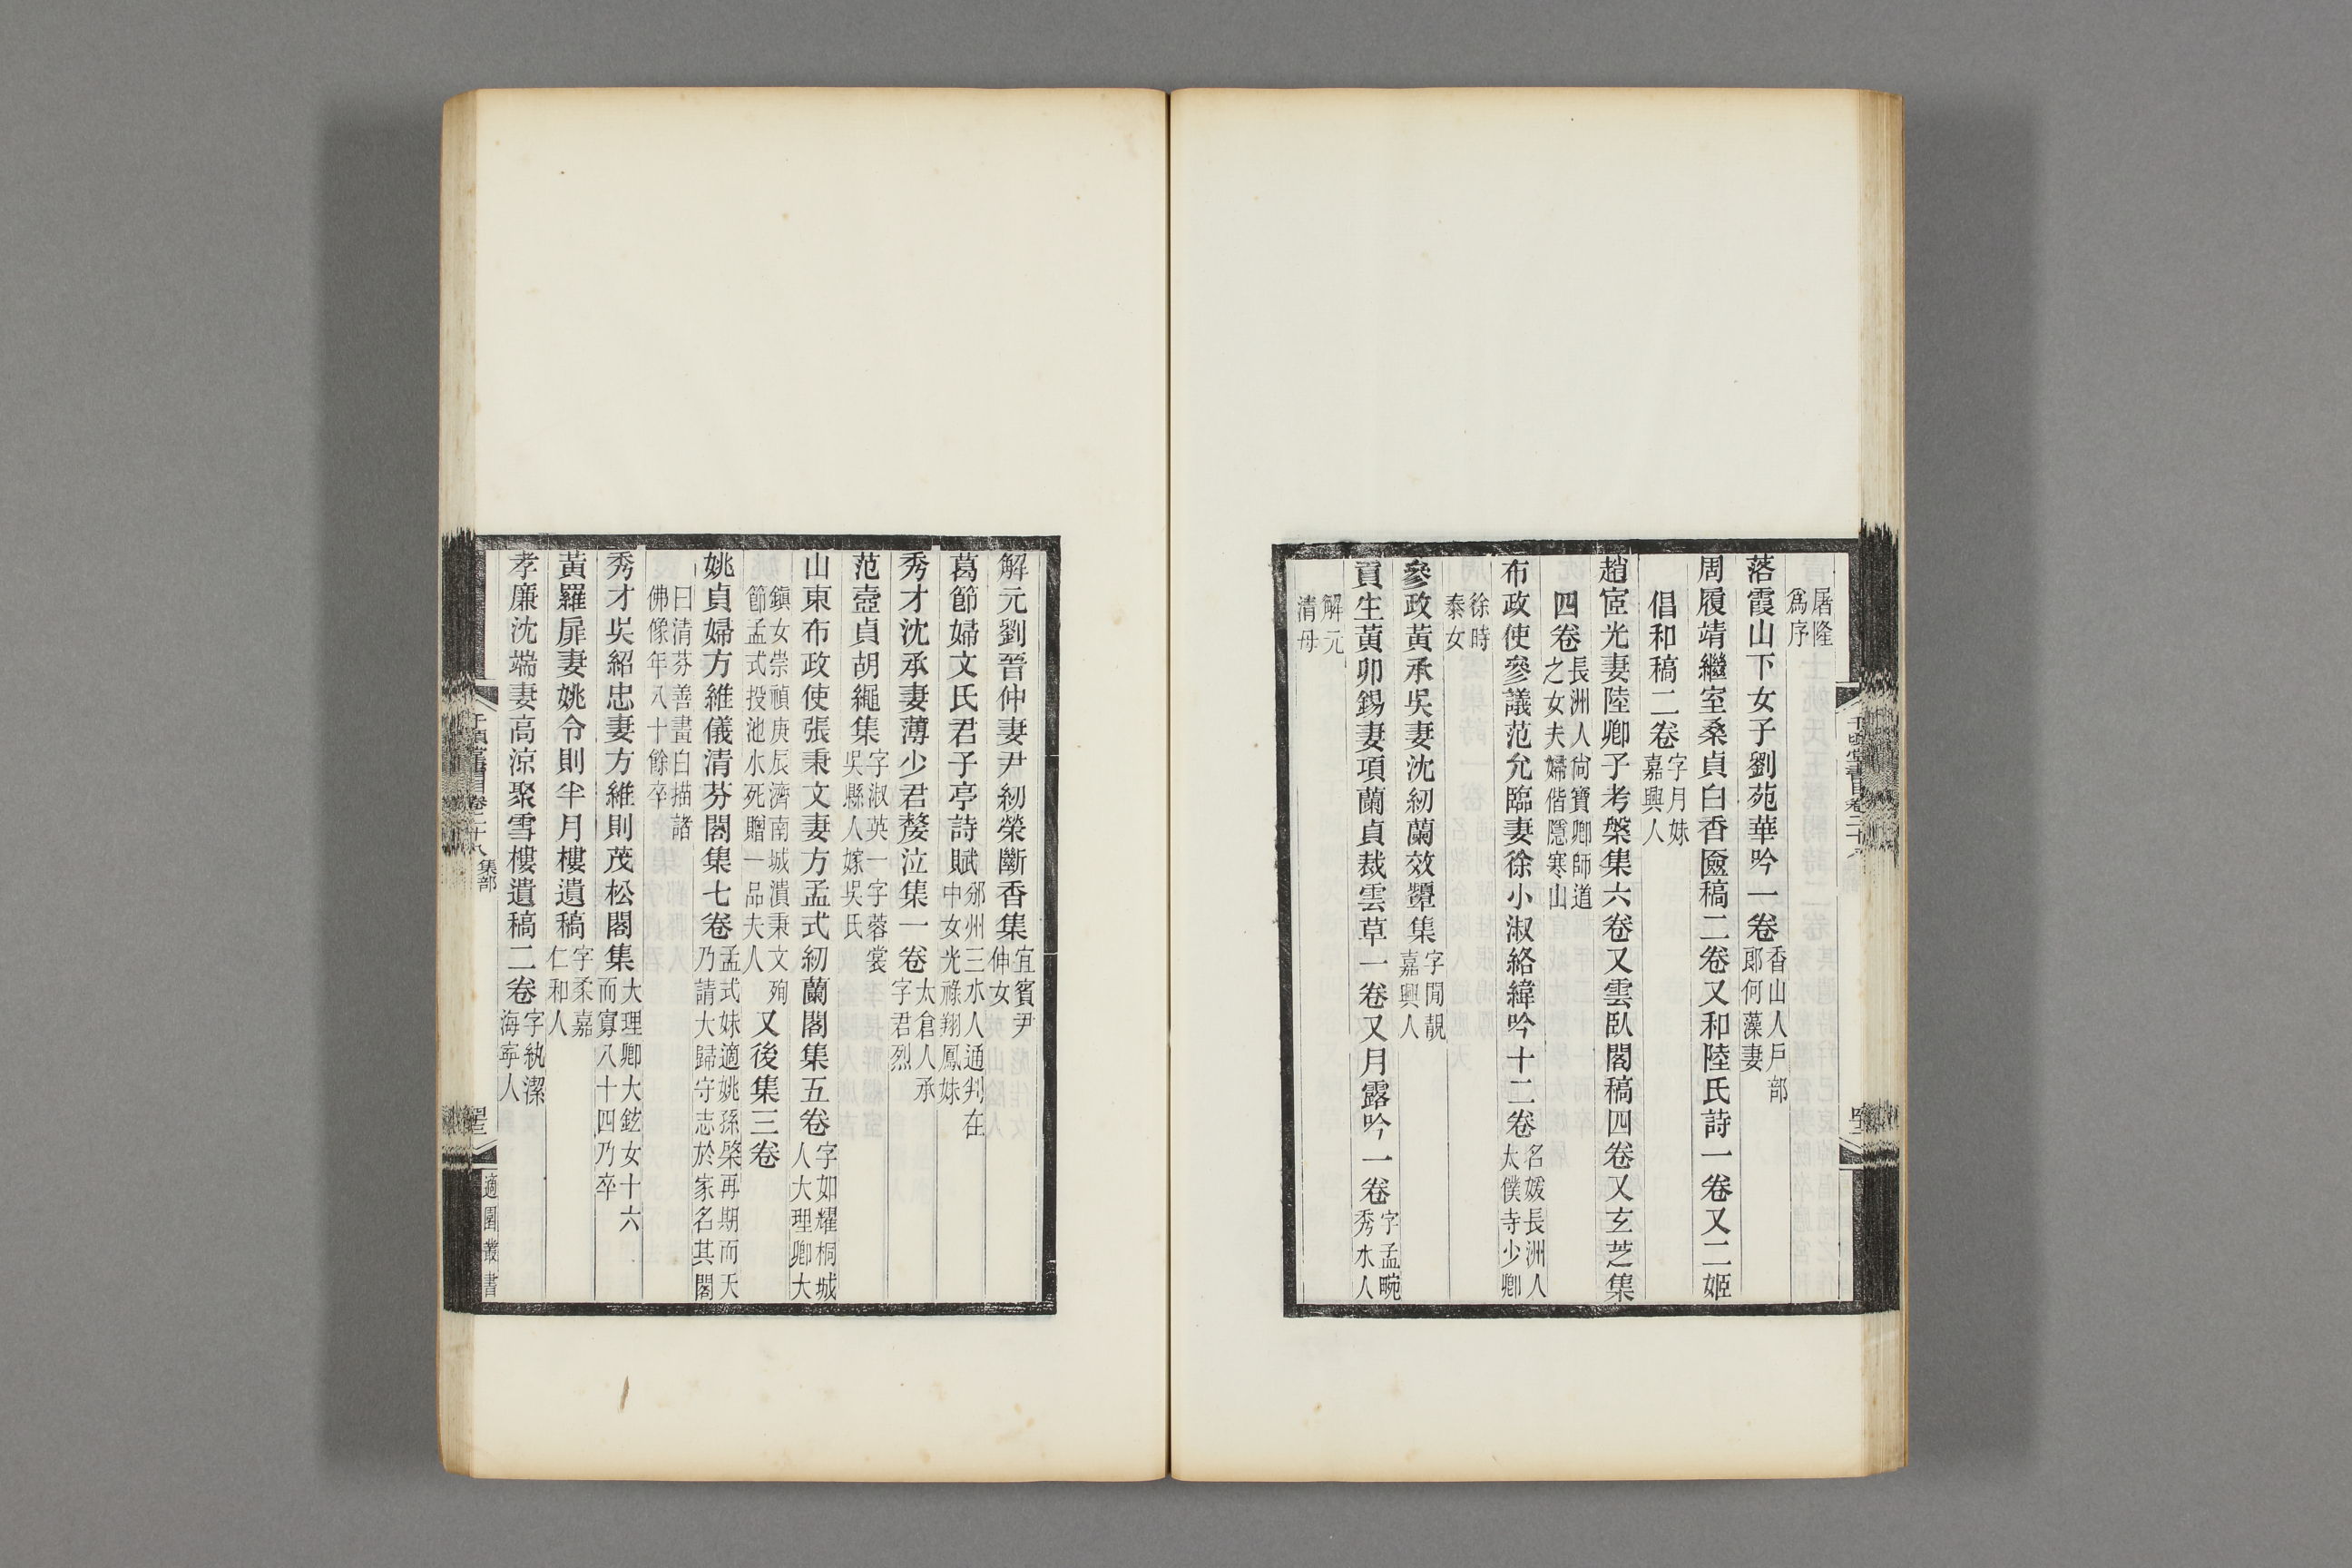 屠隆
爲序
落霞山下女子劉苑華吟一卷香山人戶部
郞何藻妻
周履靖繼室桑貞白香匳稿二卷又和陸氏詩一卷又二姬
倡和稿二卷字月妹
嘉興人
趙宧光妻陸卿子考槃集六卷又雲臥閣稿四卷又玄芝集
四卷長洲人尙寶卿師道
之女夫婦偕隱寒山
布政使參議范允臨妻徐小淑絡緯吟十二卷名媛長洲人
太僕寺少卿
徐時
泰女
參政黃承吳妻沈紉蘭效顰集字閒靚
嘉興人
貢生黃卯錫妻項蘭貞裁雲草一卷又月露吟一卷字孟畹
秀水人
解元
清母
千頃堂書目卷二十八
解元劉晉仲妻尹紉榮斷香集宜賓尹
伸女
葛節婦文氏君子亭詩賦邠州三水人通判在
中女光祿翔鳳妹
秀才沈承妻薄少君嫠泣集一卷太倉人承
字君烈
范壼貞胡繩集字淑英一字蓉裳
吳縣人嫁吳氏
山東布政使張秉文妻方孟式紉蘭閣集五卷字如耀桐城
人大理卿大
鎭女崇禎庚辰濟南城潰秉文殉
節孟式投池水死贈一品夫人又後集三卷
姚貞婦方維儀清芬閣集七卷孟式妹適姚孫棨再期而夭
乃請大歸守志於家名其閣
曰清芬善畫白描諸
佛像年八十餘卒
秀才吳紹忠妻方維則茂松閣集大理卿大鉉女十六
而寡八十四乃卒
黃羅扉妻姚令則半月樓遺稿字柔嘉
仁和人
孝廉沈端妻高涼聚雪樓遺稿二卷字紈潔
海寜人
千頃堂書目卷二十八 集部
適園叢書